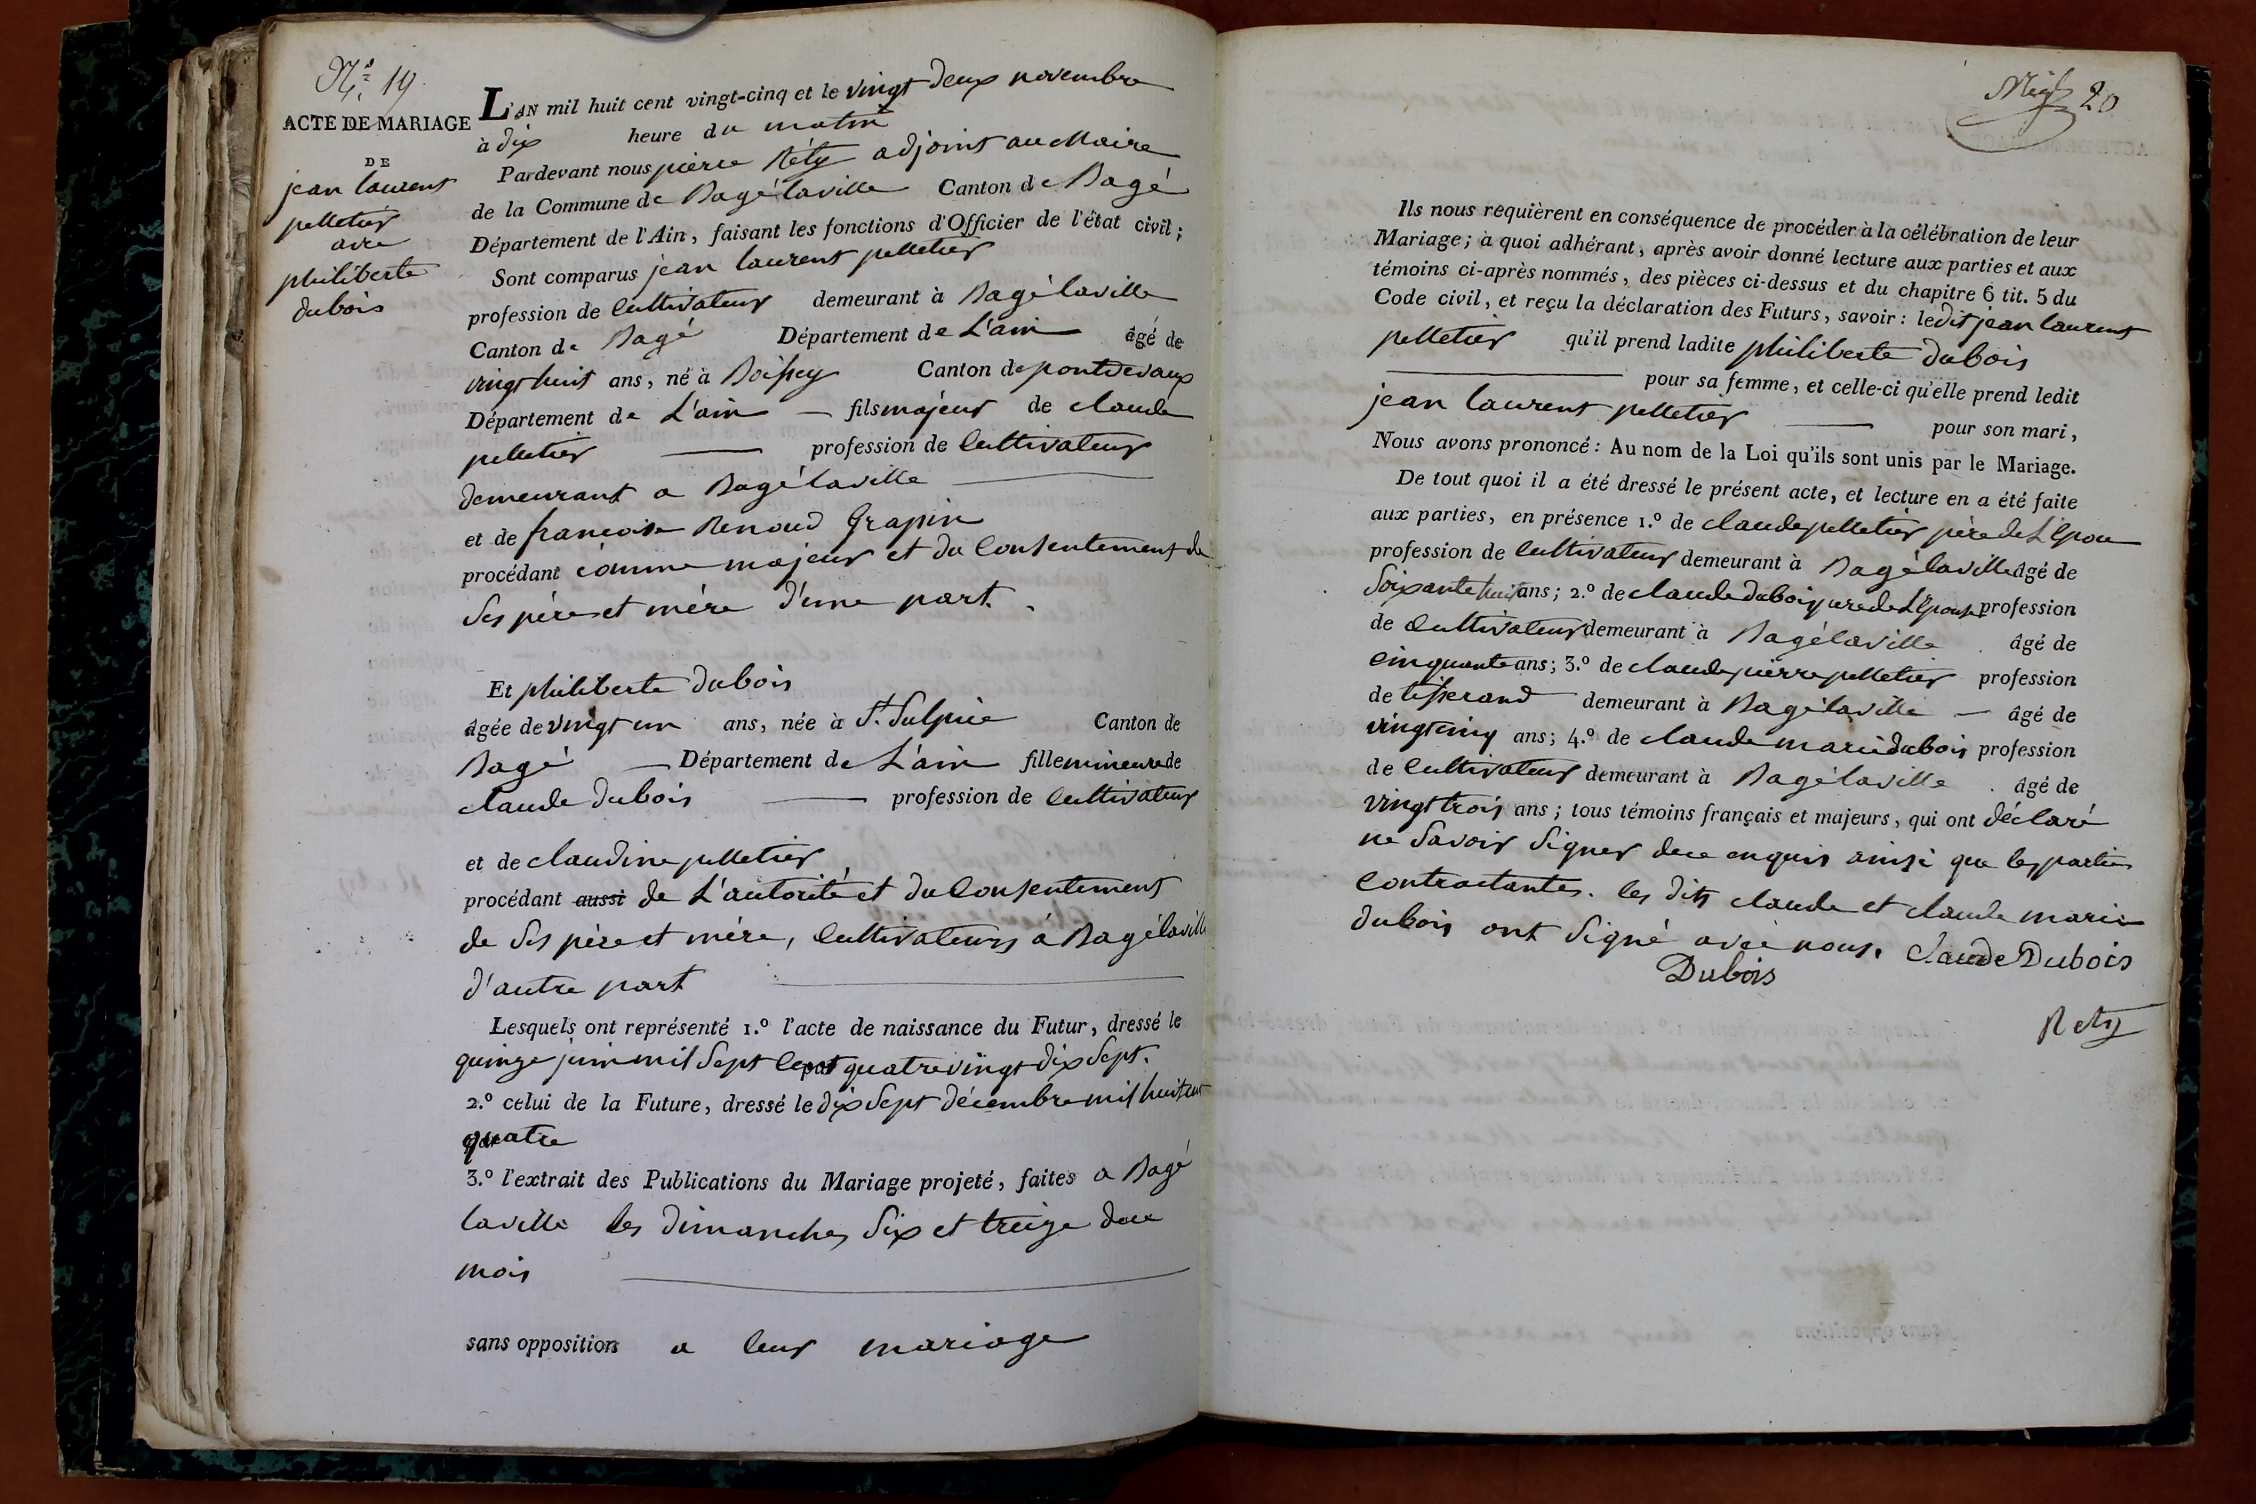 N.° 19.
ACTE DE MARIAGE
DE
jean laurent
pelletier
avec
philiberte
dubois
L'AN mil huit cent vingt-cinq et le vingt deux novembre
à dix heure du matin
Pardevant nous pierre Réty adjoint au Maire
de la Commune de Bagélaville Canton de Bagé
Département de l'Ain, faisant les fonctions d'Officier de l'état civil;
Sont comparus jean laurent pelletier
profession de Cultivateur demeurant à Bagélaville
Canton de Bagé Département de L'ain âgé de
vingt huit ans, né à Boissey Canton de pontdevaux
Département de L'ain — fils majeur de claude
pelletier — profession de Cultivateur
demeurant a Bagélaville —
et de francoise Renoud Grapin
procédant comme majeur et du Consentement de
Ses père et mère d'une part.
Et philiberte dubois
âgée de vingt un ans, née à St. Sulpice Canton de
Bagé — Département de L'ain fille mineure de
claude dubois — profession de Cultivateur
et de claudine pelletier
procédant aussi de L'autorité et du Consentement
de Ses père et mère, Cultivateurs á Bagélaville
d'autre part —
Lesquels ont représenté 1.° l'acte de naissance du Futur, dressé le
quinze juin mil Sept Cent quatrevingt dix Sept.
2.° celui de la Future, dressé le dix Sept décembre mil huit cent
quatre
3.° l'extrait des Publications du Mariage projeté, faites a Bagé
laville les dimanches Six et treize duce
mois —
sans opposition a leur mariage
20
Ils nous requièrent en conséquence de procéder à la célébration de leur
Mariage; à quoi adhérant, après avoir donné lecture aux parties et aux
témoins ci-après nommés, des pièces ci-dessus et du chapitre 6 tit. 5 du
Code civil, et reçu la déclaration des Futurs, savoir: ledit jean laurent
pelletier qu'il prend ladite philiberte dubois
— pour sa femme, et celle-ci qu'elle prend ledit
jean laurent pelletier — pour son mari,
Nous avons prononcé: Au nom de la Loi qu'ils sont unis par le Mariage.
De tout quoi il a été dressé le présent acte, et lecture en a été faite
aux parties, en présence 1.° de claude pelletier père de L'Epou
profession de Cultivateur demeurant à Bagélaville âgé de
Soixante huit ans; 2.° de claude dubois père de L'Epouse profession
de Cultivateur demeurant à Bagélaville âgé de
Cinquante ans; 3.° de claude pierre pelletier profession
de tisserand demeurant à Bagélaville — âgé de
vingt cinq ans; 4.° de claude marie dubois profession
de Cultivateur demeurant à Bagélaville âgé de
vingt trois ans; tous témoins français et majeurs, qui ont déclaré
ne Savoir Signer dece enquis ainsi que les parties
Contractantes. les dits claude et claude marie
dubois ont Signé avec nous. Claude Dubois
Dubois
Rety